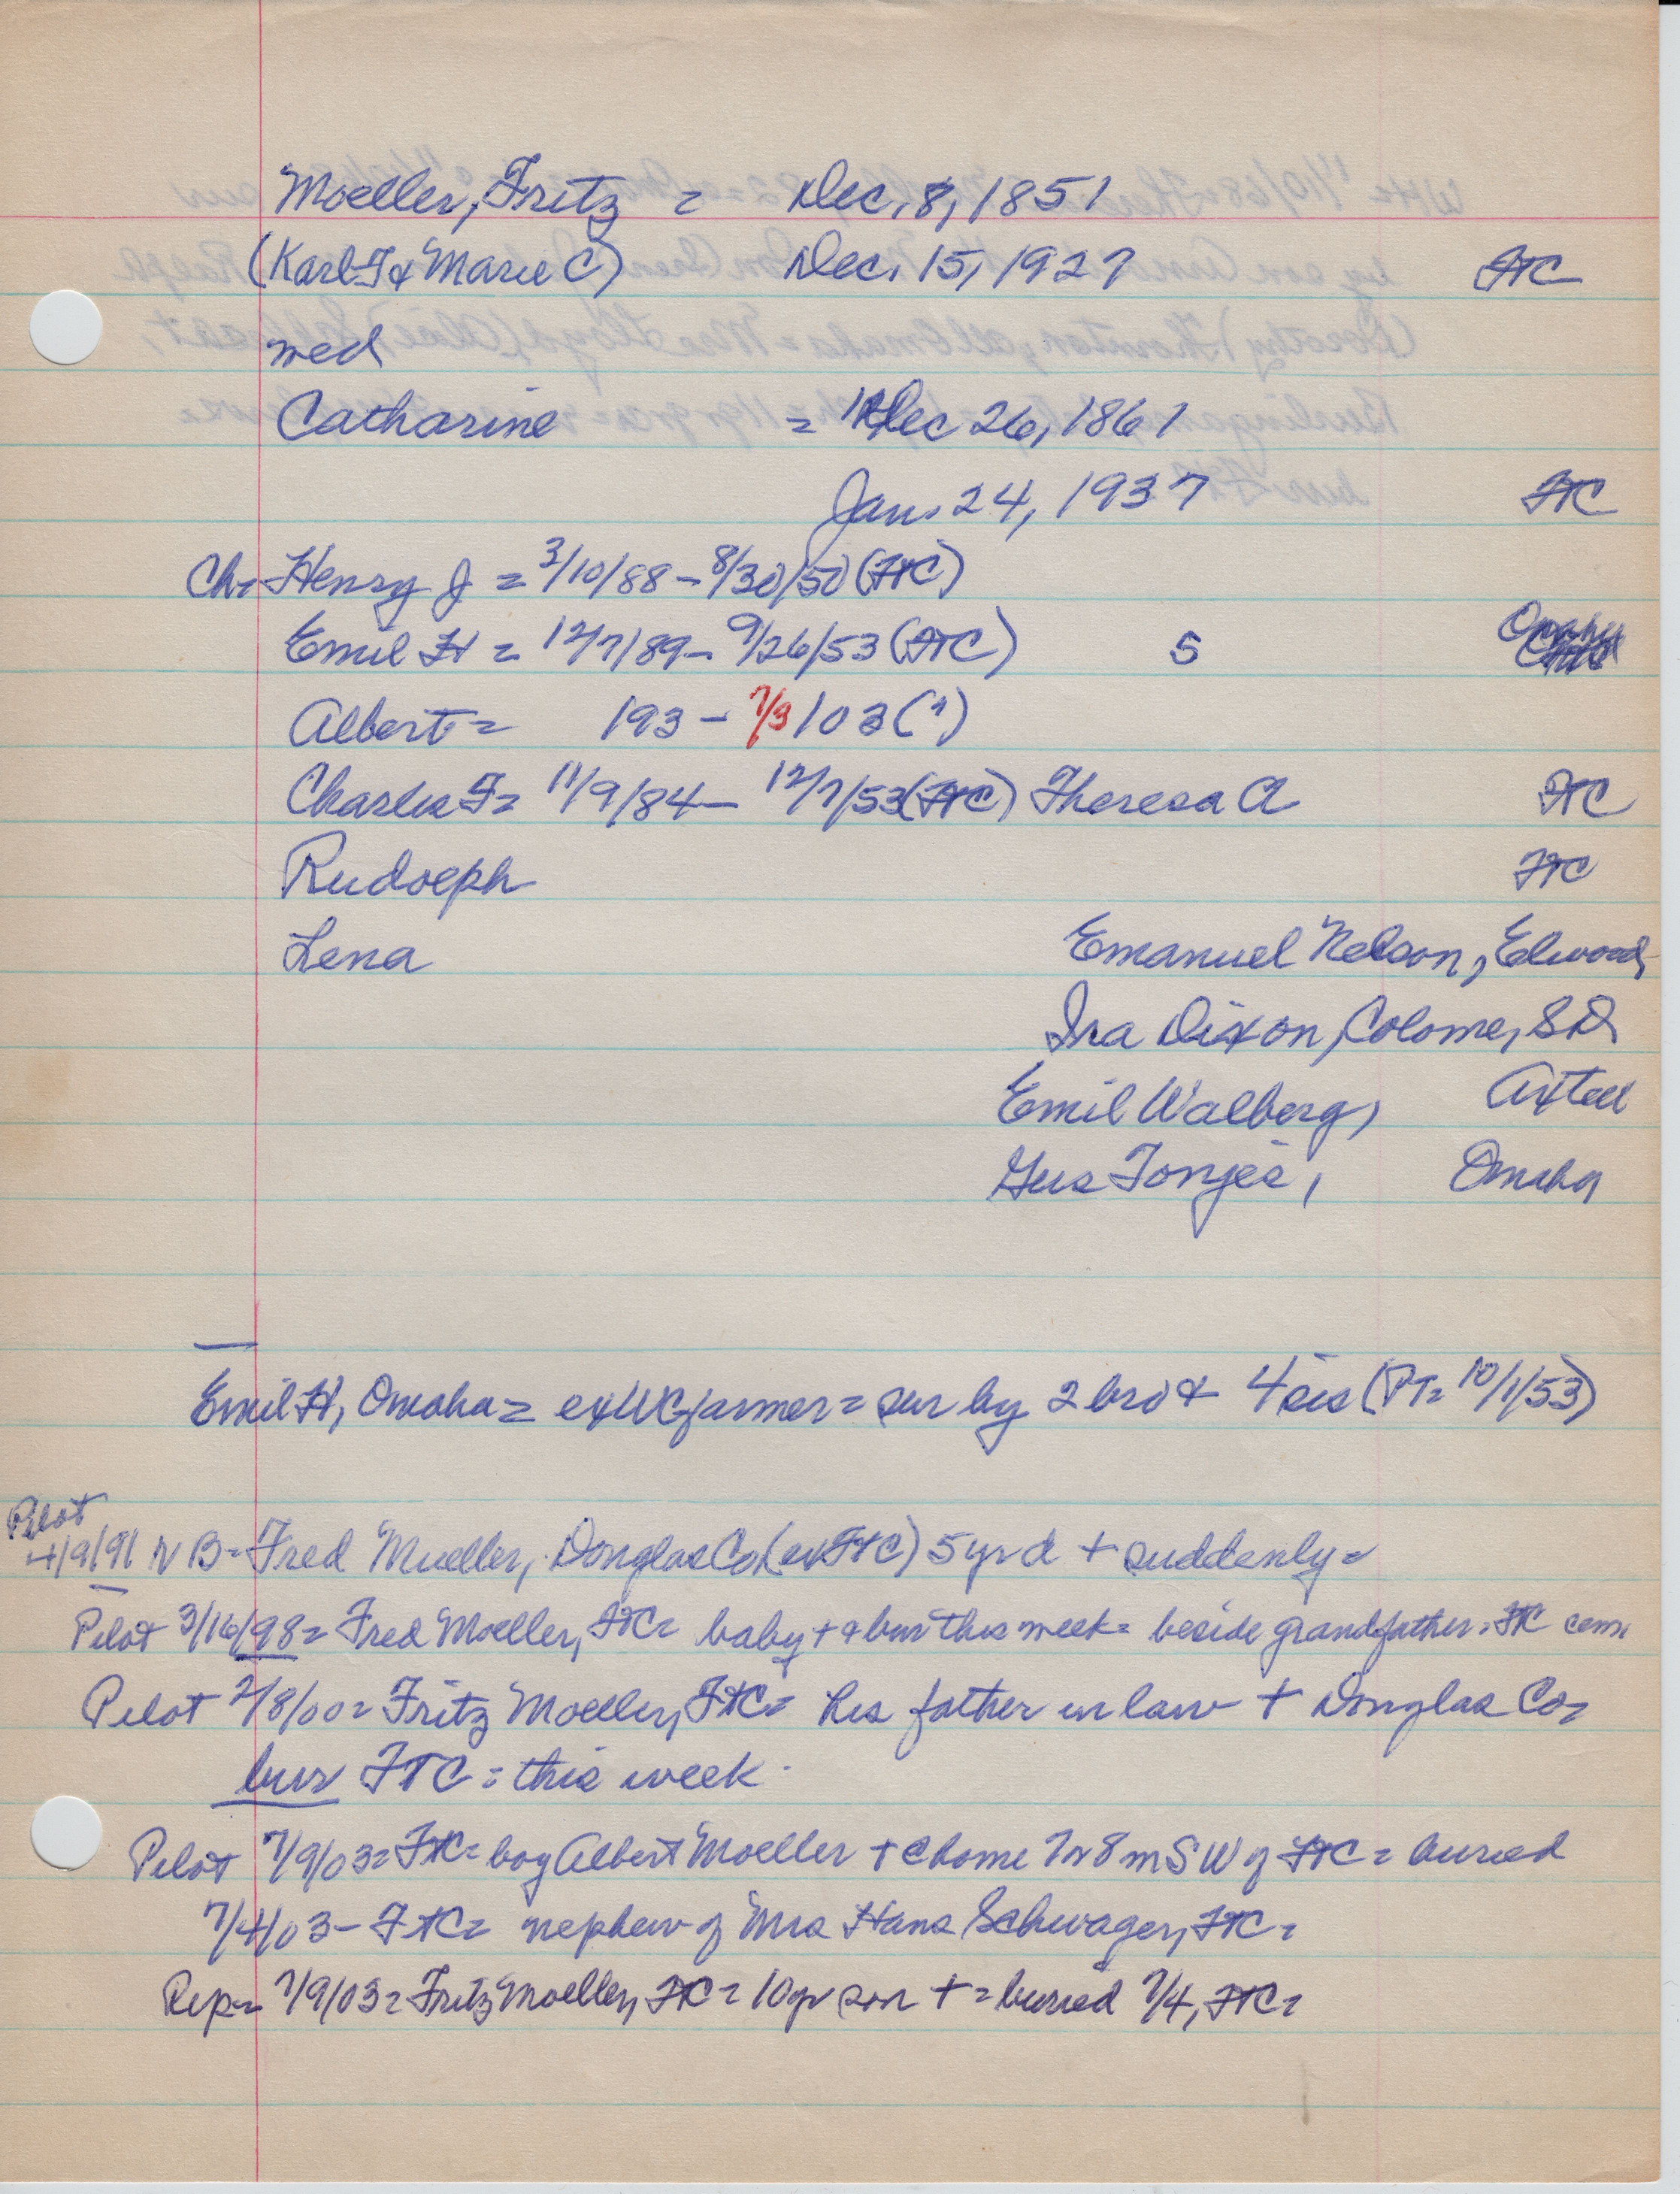 Moeller, Fritz = Dec. 8, 1851
(Karl F & Marie C) Dec. 15, 1927 FtC
wed
Catharine = Dec 26, 1861
Jan. 24, 1937 FtC
Ch. Henry J = 3/10/88 - 8/30/50 (FtC)
Emil H = 12/7/89 - 9/26/53 (FtC) 5
Albert = 193 - 7/3/03 (")
Charles F = 11/9/84 - 12/7/53 (FtC) Theresa A FtC
Rudolph FtC
Lena Emanuel Nelson, Elwood
Ira Dixon, Colome, SD
Emil Walberg, Axtell
Gus Tonjes, Omaha
Emil H, Omaha = ex WC farmer = sur by 2 bro & 4 sis (PT = 10/1/53)
Pilot
4/9/91 NB - Fred Mueller, Douglas Co (ex FtC) 5 yr d + suddenly =
Pilot 3/16/98 = Fred Moeller, FtC = baby + & bur this week = beside grandfather. FtC cem
Pilot 2/8/00 = Fritz Moeller, FtC = his father in law + Douglas Co =
bur FTC = this week.
Pilot 7/9/03 = FtC = boy Albert Moeller + @ home 7 or 8 m SW of FtC = buried
7/4/03 - FtC = nephew of Mrs Hans Schwager, FtC =
Rep = 7/9/03 = Fritz Moeller, FtC = 10 yr son + = buried 7/4, FtC =